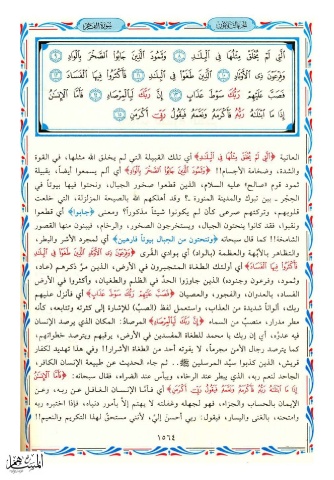 سورة الفجر
الجزء الثلاثون
ٱلَّتِى لَمْ يُخْلَقْ مِثْلُهَا فِى ٱلْبِلَٰدِ ۝٨ وَثَمُودَ ٱلَّذِينَ جَابُوا۟ ٱلصَّخْرَ بِٱلْوَادِ ۝٩
وَفِرْعَوْنَ ذِى ٱلْأَوْتَادِ ۝١٠ ٱلَّذِينَ طَغَوْا۟ فِى ٱلْبِلَٰدِ ۝١١ فَأَكْثَرُوا۟ فِيهَا ٱلْفَسَادَ ۝١٢
فَصَبَّ عَلَيْهِمْ رَبُّكَ سَوْطَ عَذَابٍ ۝١٣ إِنَّ رَبَّكَ لَبِٱلْمِرْصَادِ ۝١٤ فَأَمَّا ٱلْإِنسَٰنُ
إِذَا مَا ٱبْتَلَىٰهُ رَبُّهُۥ فَأَكْرَمَهُۥ وَنَعَّمَهُۥ فَيَقُولُ رَبِّىٓ أَكْرَمَنِ ۝١٥
العاتية ﴿ٱلَّتِى لَمْ يُخْلَقْ مِثْلُهَا فِى ٱلْبِلَٰدِ﴾ أي تلك القبيلة التي لم يخلق الله مثلها، في القوة
والشدة، وضخامة الأجسام!! ﴿وَثَمُودَ ٱلَّذِينَ جَابُوا۟ ٱلصَّخْرَ بِٱلْوَادِ﴾ أي ألم يسمعوا أيضاً، بقبيلة
ثمود قوم «صالح» عليه السلام، الذين قطعوا صخور الجبال، ونحتوا فيها بيوتاً في
الحِجْر ـ بين تبوك والمدينة المنورة ـ؟ وقد أهلكهم الله بالصيحة المزلزلة، التي خلعت
قلوبهم، وتركتهم صرعى كأن لم يكونوا شيئاً مذكوراً؟ ومعنى ﴿جابوا﴾ أي قطعوا
ونقبوا، فقد كانوا ينحتون الجبال، ويستخرجون الصخور، والرخام، فيبنون منها القصور
الشامخة!! كما قال سبحانه ﴿وتنحتون من الجبال بيوتاً فارهين﴾ أي لمجرد الأشر والبطر،
والتظاهر بالأبهة والعظمة ﴿بالواد﴾ أي بوادي القرى ﴿وَفِرْعَوْنَ ذِى ٱلْأَوْتَادِ ٱلَّذِينَ طَغَوْا۟ فِى ٱلْبِلَٰدِ
فَأَكْثَرُوا۟ فِيهَا ٱلْفَسَادَ﴾ أي أولئك الطغاة المتجبرون في الأرض، الذين مرَّ ذكرهم (عاد،
وثمود، وفرعون وجنوده) الذين جاوزوا الحدَّ في الظلم والطغيان، وأكثروا في الأرض
الفساد، بالعدوان، والفجور، والعصيان ﴿فَصَبَّ عَلَيْهِمْ رَبُّكَ سَوْطَ عَذَابٍ﴾ أي فأنزل عليهم
ربك، ألواناً شديدة من العذاب، واستعمل لفظ (الصبّ) للإشارة إلى كثرته وتتابعه، كأنه
مطر مدرار، منصبٌّ من السماء ﴿إِنَّ رَبَّكَ لَبِٱلْمِرْصَادِ﴾ المرصاد: المكان الذي يرصد الإنسان
فيه عدوَّه، أي إن ربك يا محمد للطغاة المفسدين في الأرض، يرقبهم ويترصد خطواتهم،
كما يترصد رجال الأمن مجرماً، لا يفوته أحد من الطغاة الأشرار!! وفي هذا تهديد لكفار
قريش، الذين كذبوا سيّد المرسلين ﷺ .. ثم جاء الحديث عن طبيعة الإنسان الكافر،
الجاحد لنعم ربه، الذي يبطر عند الرخاء، وييأس عند الضراء، فقال سبحانه: ﴿فَأَمَّا ٱلْإِنسَٰنُ
إِذَا مَا ٱبْتَلَىٰهُ رَبُّهُۥ فَأَكْرَمَهُۥ وَنَعَّمَهُۥ فَيَقُولُ رَبِّىٓ أَكْرَمَنِ﴾ أي فأما الإنسان الغافل عن ربه، وعن
الإيمان بالحساب والجزاء، فهو لجهله وغفلته لا يهتم إلا بأمور دنياه، فإذا اختبره ربه
وامتحنه، بالغنى واليسار، فيقول: ربي أحسنَ إليَّ، لأنني مستحقٌّ لهذا التكريم والنعيم!!
١٥٦٤